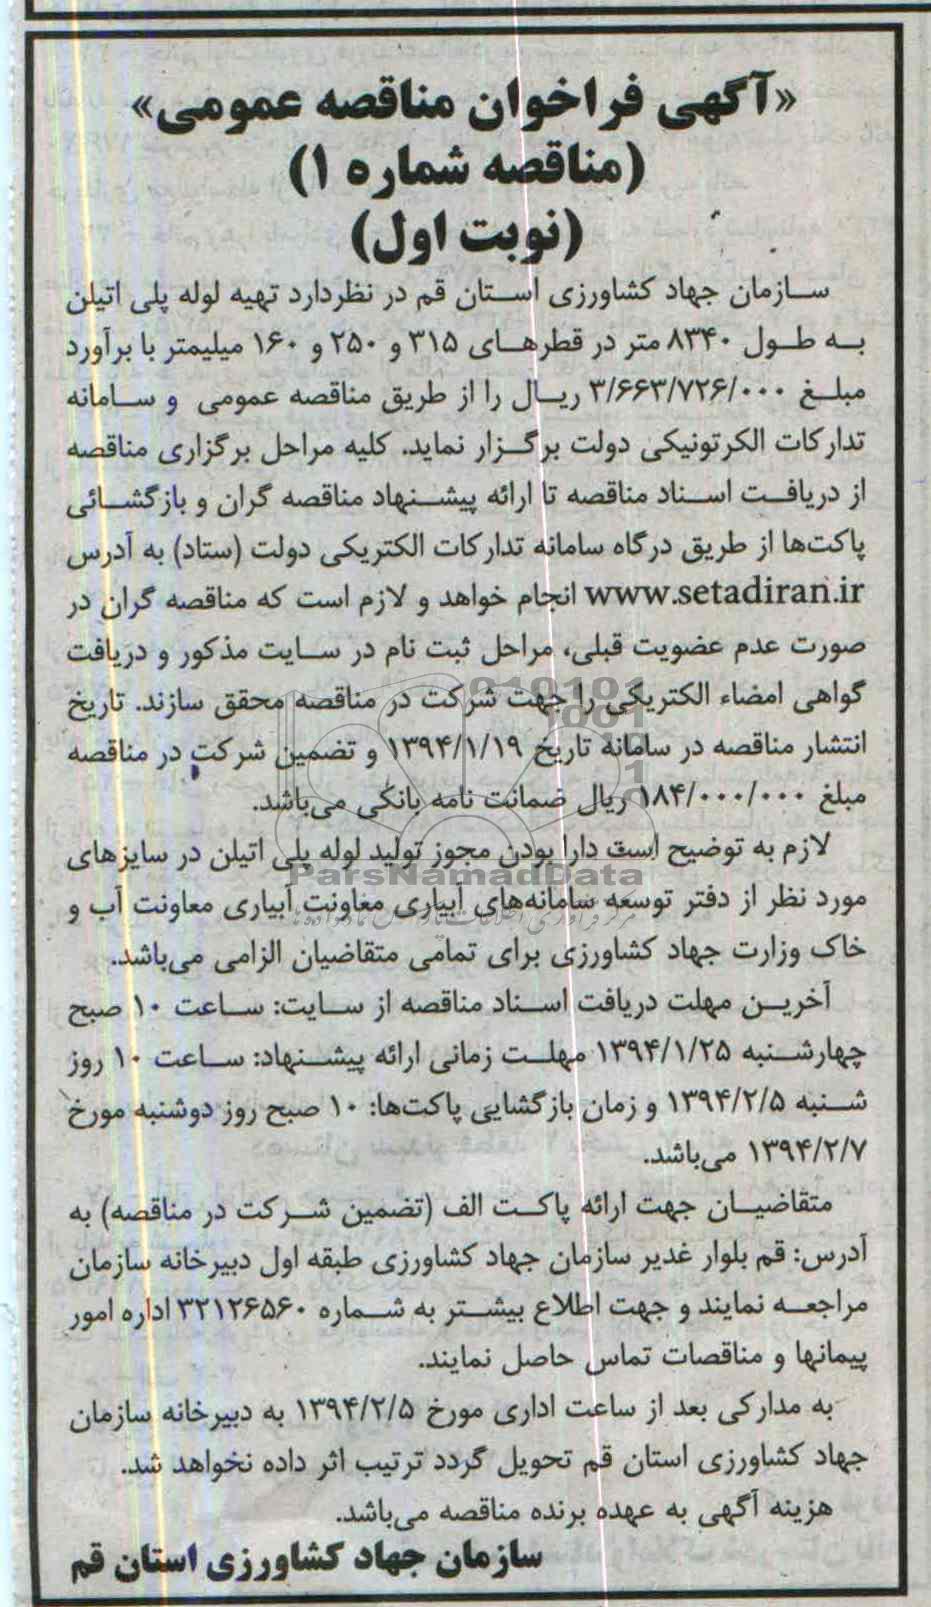 «آگهی فراخوان مناقصه عمومی»
(مناقصه شماره ۱)
(نوبت اول)
سازمان جهاد کشاورزی استان قم در نظردارد تهیه لوله پلی اتیلن
به طول ۸۳۴۰ متر در قطرهای ۳۱۵ و ۲۵۰ و ۱۶۰ میلیمتر با برآورد
مبلغ ۳/۶۶۳/۷۲۶/۰۰۰ ریال را از طریق مناقصه عمومی و سامانه
تدارکات الکرتونیکی دولت برگزار نماید. کلیه مراحل برگزاری مناقصه
از دریافت اسناد مناقصه تا ارائه پیشنهاد مناقصه گران و بازگشائی
پاکت‌ها از طریق درگاه سامانه تدارکات الکتریکی دولت (ستاد) به آدرس
www.setadiran.ir انجام خواهد و لازم است که مناقصه گران در
صورت عدم عضویت قبلی، مراحل ثبت نام در سایت مذکور و دریافت
گواهی امضاء الکتریکی را جهت شرکت در مناقصه محقق سازند. تاریخ
انتشار مناقصه در سامانه تاریخ ۱۳۹۴/۱/۱۹ و تضمین شرکت در مناقصه
مبلغ ۱۸۴/۰۰۰/۰۰۰ ریال ضمانت نامه بانکی می‌باشد.
لازم به توضیح است دارا بودن مجوز تولید لوله پلی اتیلن در سایزهای
ParsNamadData
مورد نظر از دفتر توسعه سامانه‌های آبیاری معاونت آبیاری معاونت آب و
خاک وزارت جهاد کشاورزی برای تمامی متقاضیان الزامی می‌باشد.
آخرین مهلت دریافت اسناد مناقصه از سایت: ساعت ۱۰ صبح
چهارشنبه ۱۳۹۴/۱/۲۵ مهلت زمانی ارائه پیشنهاد: ساعت ۱۰ روز
شنبه ۱۳۹۴/۲/۵ و زمان بازگشایی پاکت‌ها: ۱۰ صبح روز دوشنبه مورخ
۱۳۹۴/۲/۷ می‌باشد.
متقاضیان جهت ارائه پاکت الف (تضمین شرکت در مناقصه) به
آدرس: قم بلوار غدیر سازمان جهاد کشاورزی طبقه اول دبیرخانه سازمان
مراجعه نمایند و جهت اطلاع بیشتر به شماره ۳۲۱۲۶۵۶۰ اداره امور
پیمانها و مناقصات تماس حاصل نمایند.
به مدارکی بعد از ساعت اداری مورخ ۱۳۹۴/۲/۵ به دبیرخانه سازمان
جهاد کشاورزی استان قم تحویل گردد ترتیب اثر داده نخواهد شد.
هزینه آگهی به عهده برنده مناقصه می‌باشد.
سازمان جهاد کشاورزی استان قم